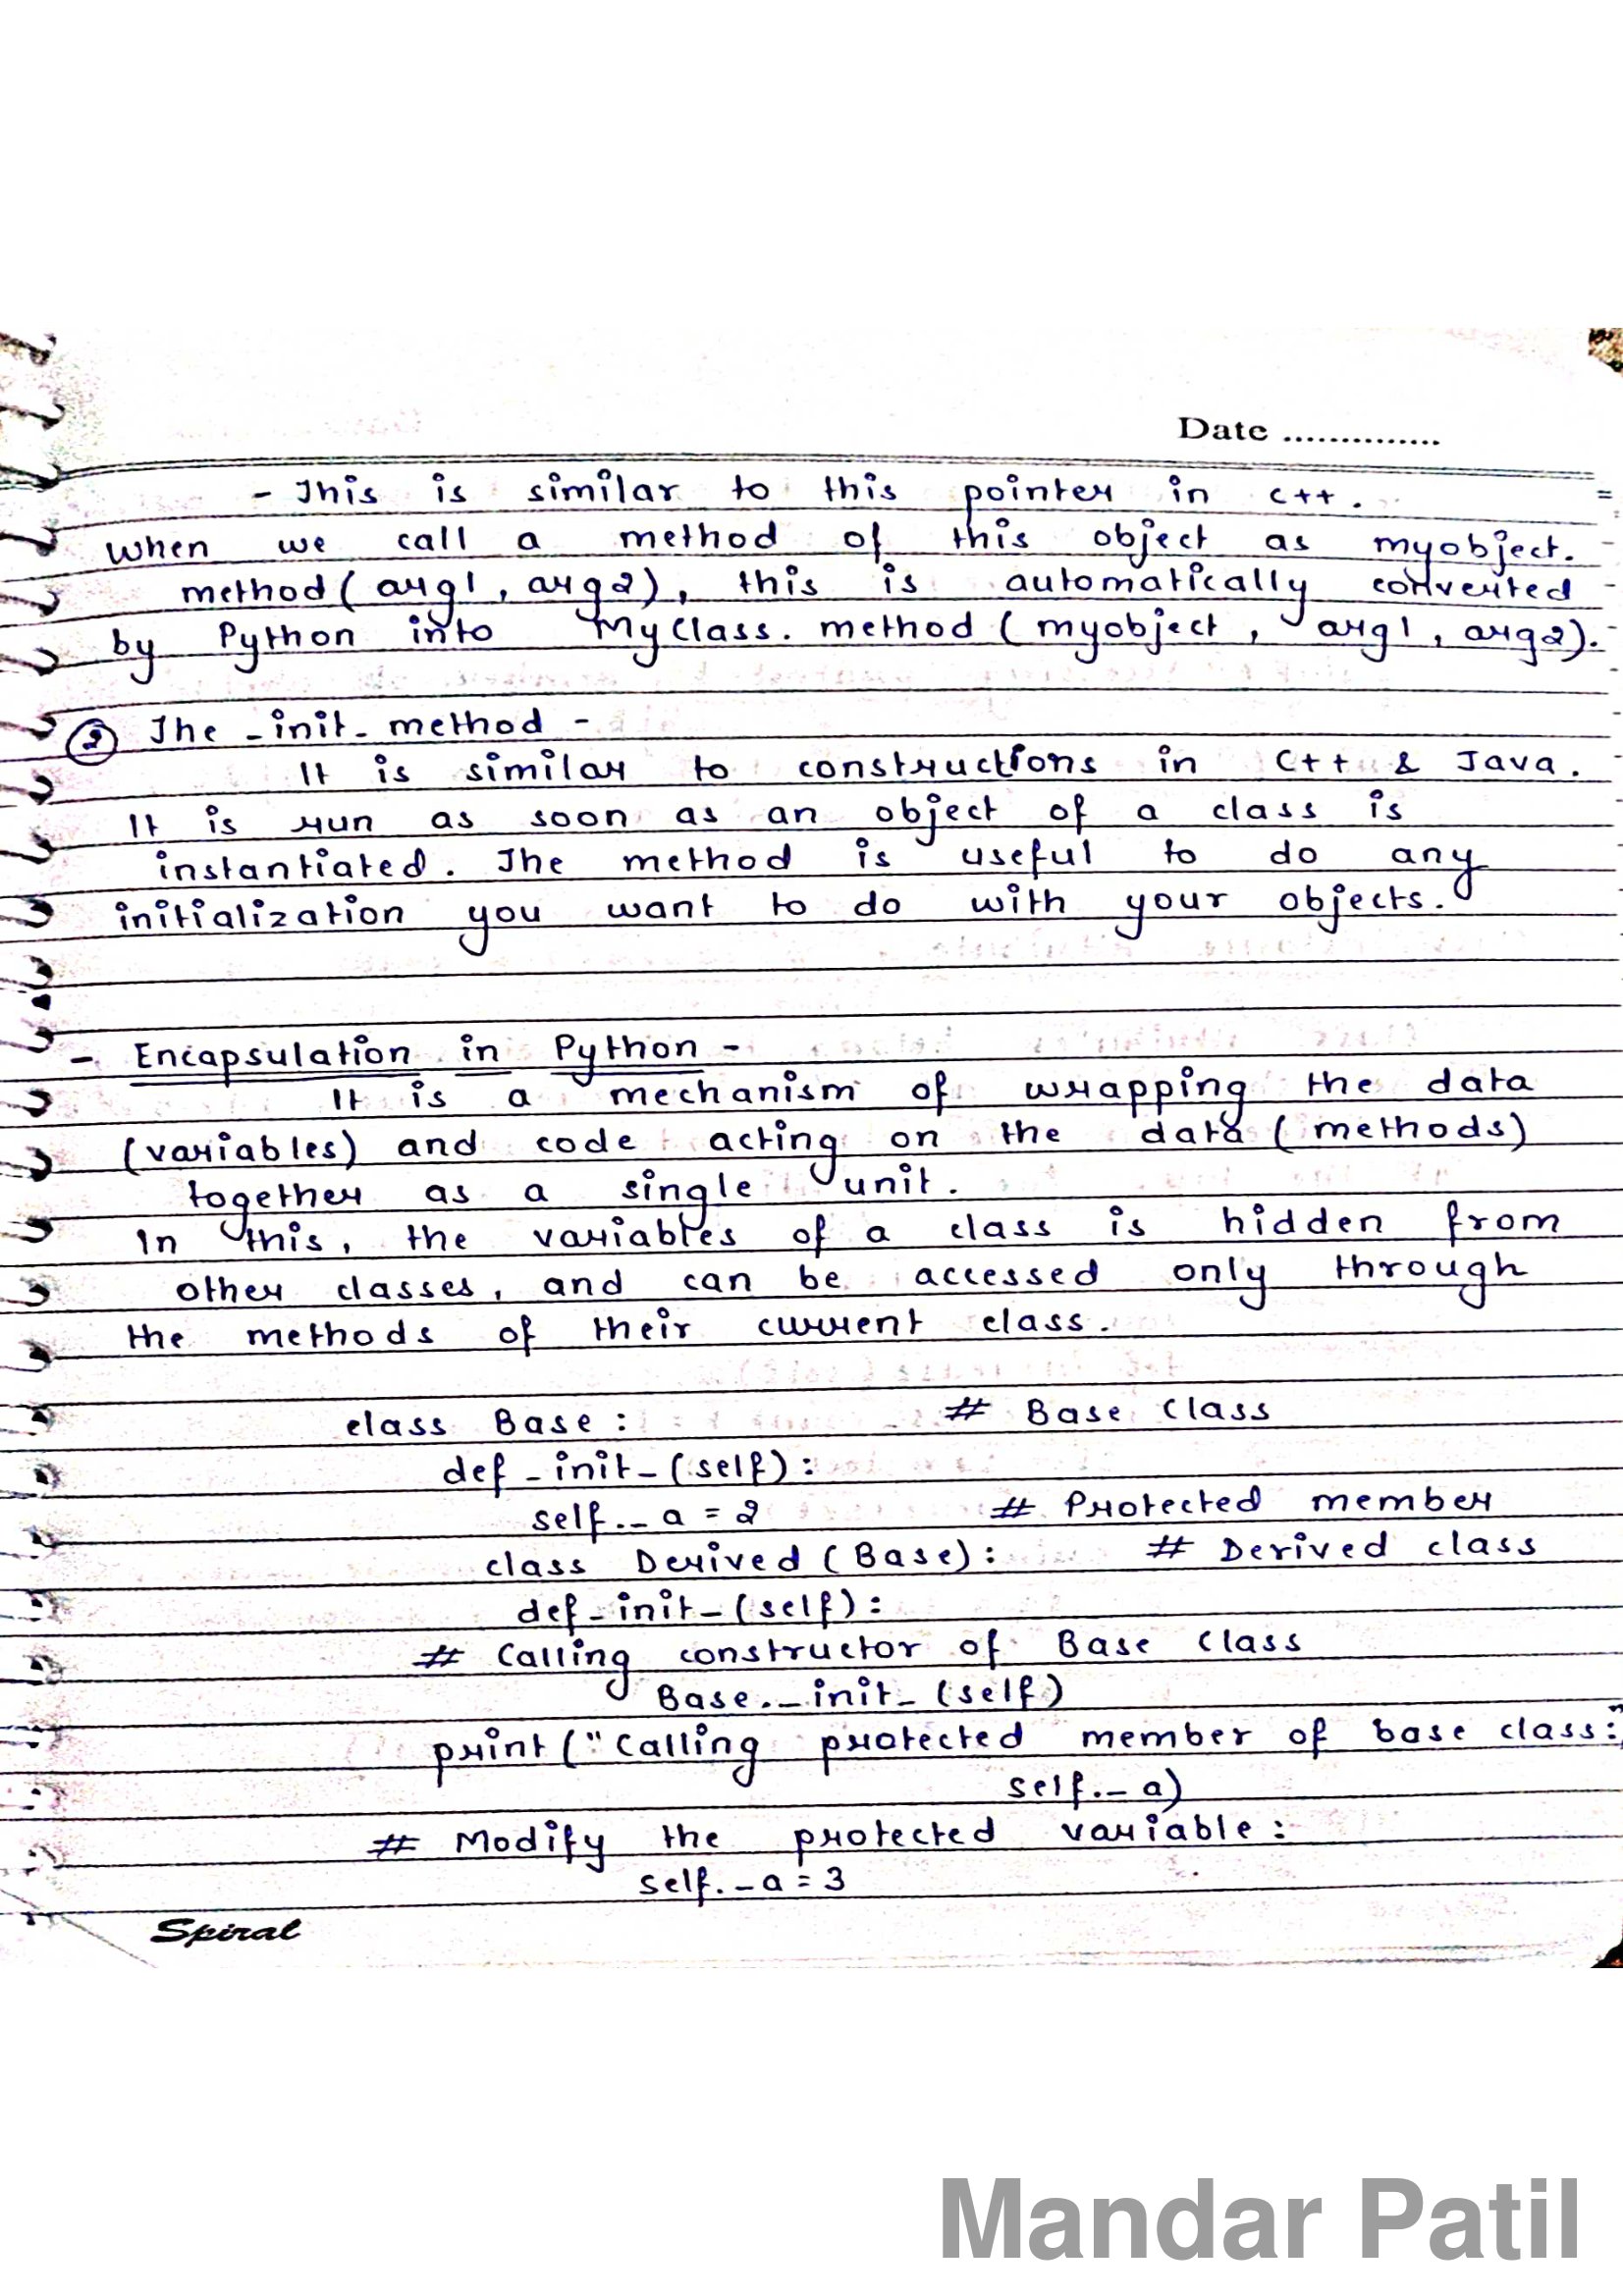 Date ..............
- This is similar to this pointer in c++.
when we call a method of this object as myobject.
method(arg1, arg2), this is automatically converted
by Python into MyClass. method (myobject, arg1, arg2).
② The _init_ method -
It is similar to constructions in C++ & Java.
It is run as soon as an object of a class is
instantiated. The method is useful to do any
initialization you want to do with your objects.
- Encapsulation in Python -
It is a mechanism of wrapping the data
(variables) and code acting on the data (methods)
together as a single unit.
In this, the variables of a class is hidden from
other classes, and can be accessed only through
the methods of their current class.
class Base: # Base class
def _init_(self):
self._a = 2 # Protected member
class Derived (Base): # Derived class
def _init_(self):
# Calling constructor of Base class
Base._init_(self)
print("Calling protected member of base class:",
self._a)
# Modify the protected variable:
self._a = 3
Spiral
Mandar Patil